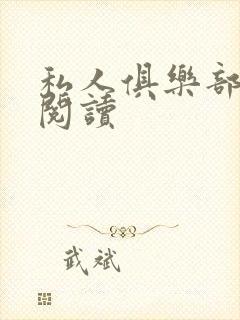 私人俱樂部
閱讀
武斌